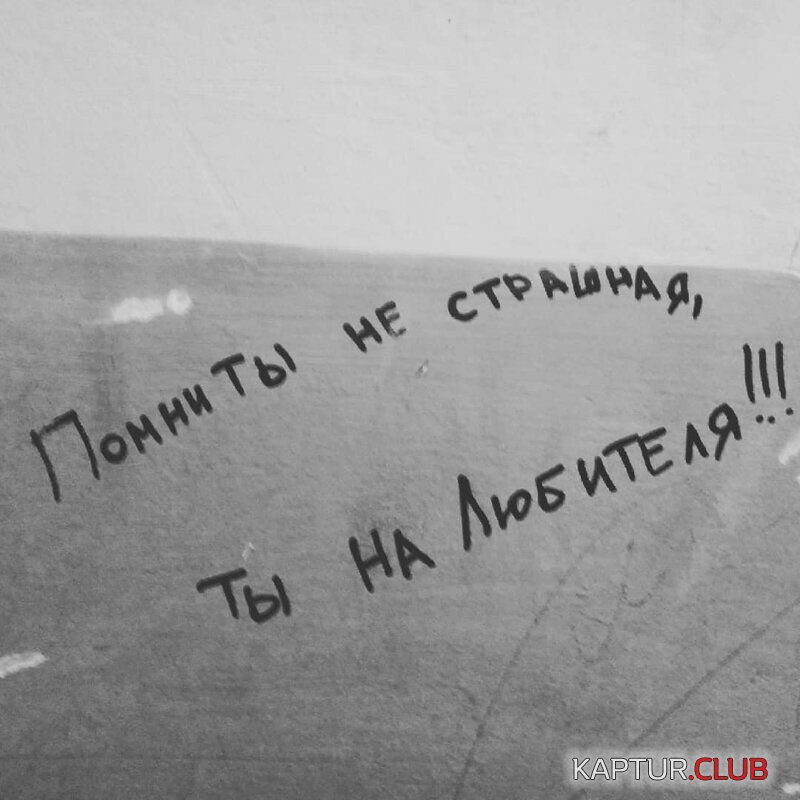 Помни ты не страшная,
ты на любителя!!!
KAPTUR.CLUB